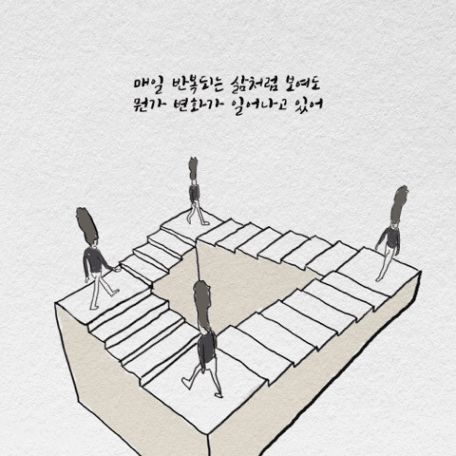 매일 반복되는 삶처럼 보여도
뭔가 변화가 일어나고 있어